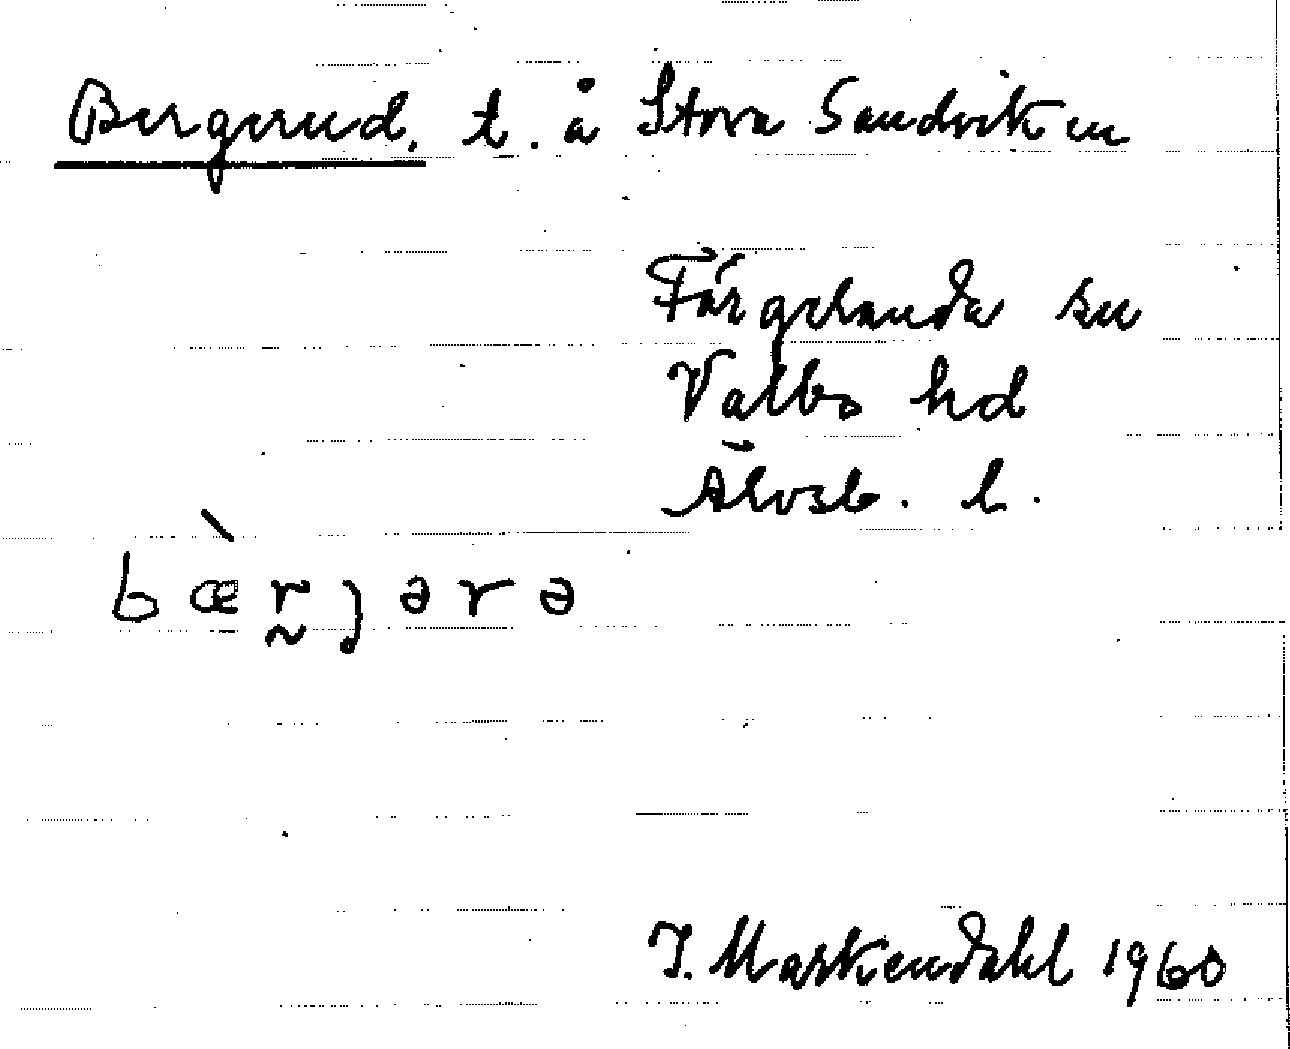 Bergerud, t. å Stora Sandviken
Färgelanda sn
Valbo hd
Älvsb. l.
bæ̀r̰ȷərə
I. Markendahl 1960